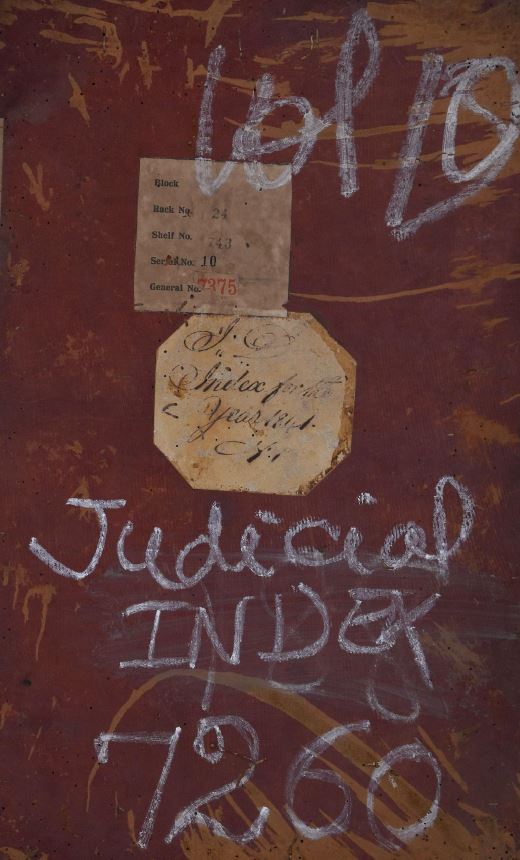 Vol 10
Block
Rack No. 24
Shelf No. 743
Serial No. 10
General No. 7375
J. D
Index for the
Year 1861.
Judicial
INDEX
7260